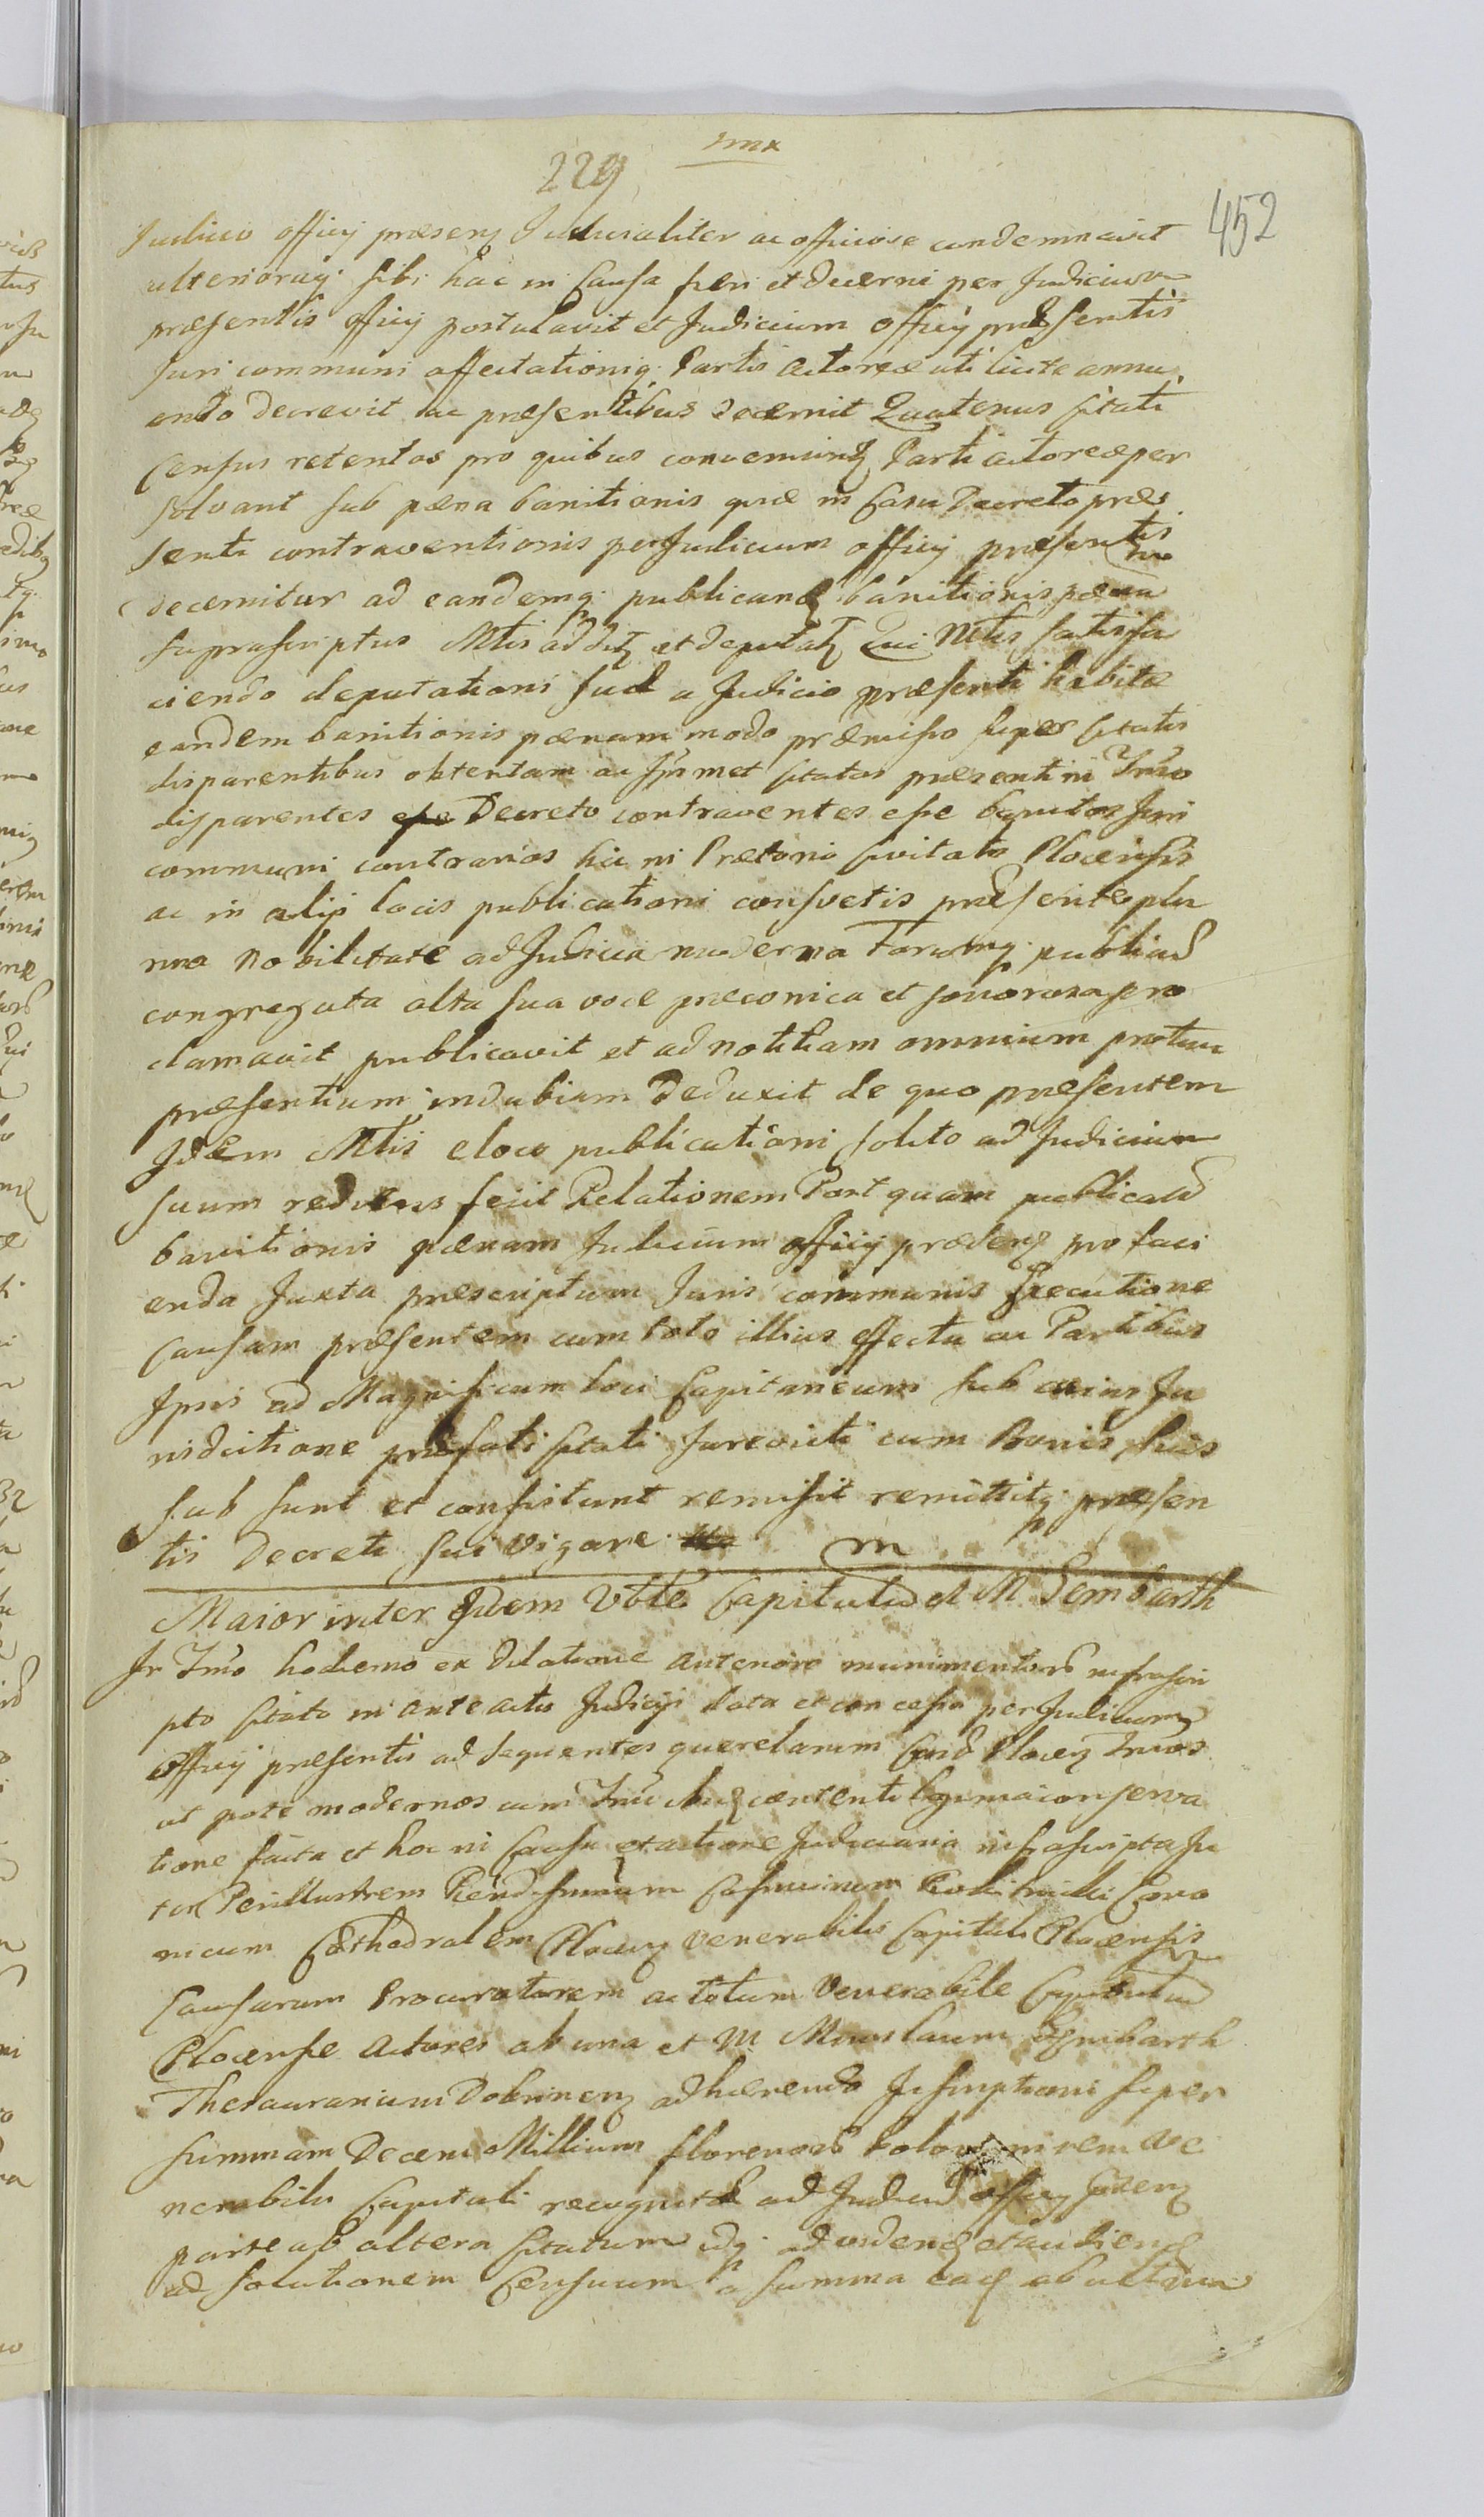 229
452
Judicio officij præsenz Judicialiter ac officiose condemnavit
ulterioruq. sibi hac in Causa fieri et decerni per Judicium
præsentis officij postulavit et Judicium officij præsentis
Juri communi affectationiq. Partis Actoreæ uti licitæ annu
endo decrevit ac præsentibus decernit Quatenus Citati
Census retentos pro quibus conveniunt Parti actoreæ per
solvant sub pæna banitionis quæ in Casu Decreto præ
senti contraventionis per Judicium officij præsentis
decernitur ad eandemq. publicand banitionis pænam
suprascriptus Mtis additz et deputatz Qui Mtis satisfa
ciendo deputationi suæ a Judicio præsenti habitæ
eandem banitionis pænam modo præmisso super Citatis
disparentibus obtentam ac Ipsosmet Citatos præsenti in Tmno
disparentes Decreto contravenientes esse banitos Juri
communi contrarios hic in Prætorio Civitatis Plocensis
ac in alijs locis publicationi consvetis præsente plu
rima Nobilitate ad Judicia moderna Forumq. publicum
congregata alta sua voce præconica et sonorosa pro
clamavit publicavit et ad notitiam omnium protunc
præsentium indubiam deduxit de quo præsentem
Idem Mtis e loco publicationi solito ad Judicium
suum redux fecit Relationem Post quam publicatam
banitionis pænam Judicium officij præsenz pro faci
enda Juxta præscriptum Juris communis Executione
Causam præsentem cum toto illius effectu ac Partibus
Ipsis ad Magnificum loci Capitaneum sub cuius Ju
risdictione præfati Citati Jurevicti cum Bonis suis
sub sunt et consistunt remisit remittitq. præsen
tis Decreti sui vigore
Maior inter Idem Vble Capitulum et M. Lembarth
In Tmno hodierno ex dilatione anteriori munimentorum infrascri
pto Citato in anteactis Judicijs data et concessa per Judicium
officij præsentis ad sequentes querelarum Cast Plocenz Tmnos
ut pote modernos cum conserva
tione facta et hoc in Causa et actione Judiciaria infrascripta In
ter Perillustrem Rendissimum Casimirum Rokitnicki Cano
nicum Cathedralem Plocenz Venerabilis Capituli Plocensis
Causarum Procuratorem ac totum Venerabile Capitulum
Plocense Actores ab una et M. Lembarth
Thesaurarium Dobrinenz adhærendo Inscriptioni super
summam Decem Millium florenorum Polon in rem Ve
nerabilis Capituli recognitæ ad Judicium officij præsenz
parte ab altera Citatum idq. ad videnz et audienz
ad solutionem Censuum a summa ead ab